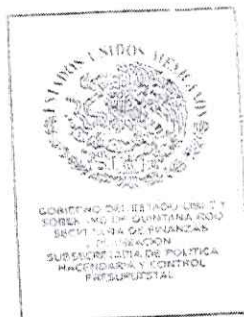 ESTADOS UNIDOS MEXICANOS
GOBIERNO DEL ESTADO LIBRE Y
SOBERANO DE QUINTANA ROO
SECRETARIA DE FINANZAS
Y PLANEACION
SUBSECRETARIA DE POLITICA
HACENDARIA Y CONTROL
PRESUPUESTAL